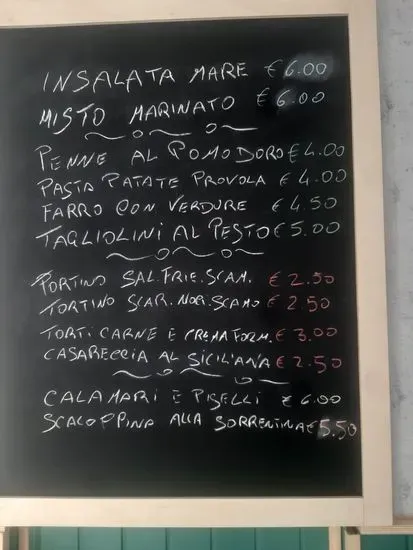 INSALATA MARE € 6.00
MISTO MARINATO € 6.00
PENNE AL POMODORO € 4.00
PASTA PATATE PROVOLA € 4.00
FARRO CON VERDURE € 4.50
TAGLIOLINI AL PESTO € 5.00
TORTINO SAL.FRIE.SCAM. € 2.50
TORTINO SCAR.NOR.SCAMO € 2.50
TORTI CARNE E CREMA FORM. € 3.00
CASARECCIA AL SICILIANA € 2.50
CALAMARI E PISELLI € 6.00
SCALOPPINA ALLA SORRENTINA € 5.50